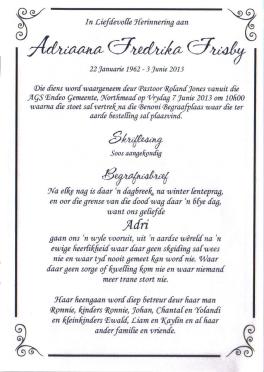 In Liefdevolle Herinnering aan
Adriaana Fredrika Frisby
22 Januarie 1962 - 3 Junie 2013
Die diens word waargeneem deur Pastoor Roland Jones vanuit die
AGS Endeo Gemeente, Northmead op Vrydag 7 Junie 2013 om 10h00
waarna die stoet sal vertrek na die Benoni Begraafplaas waar die ter
aarde bestelling sal plaasvind.
Skriflesing
Soos aangekondig
Begrafnisbrief
Na elke nag is daar 'n dagbreek, na winter lenteprag,
en oor die grense van die dood wag daar 'n blye dag,
want ons geliefde
Adri
gaan ons 'n wyle vooruit, uit 'n aardse wêreld na 'n
ewige heerlikheid waar daar geen skeiding sal wees
nie en waar tyd nooit gemeet kan word nie. Waar
daar geen sorge of kwelling kom nie en waar niemand
meer trane stort nie.
Haar heengaan word diep betreur deur haar man
Ronnie, kinders Ronnie, Johan, Chantal en Yolandi
en kleinkinders Ewald, Liam en Kaylin en al haar
ander familie en vriende.